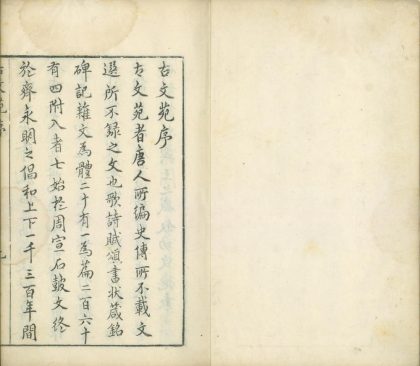 古文苑序
古文苑者唐人所編史傳所不載文
選所不錄之文也歌詩賦頌書狀箴銘
碑記雜文為體二十有一為篇二百六十
有四附入者七始於周宣石鼓文終
於齊永明之倡和上下一千三百年間